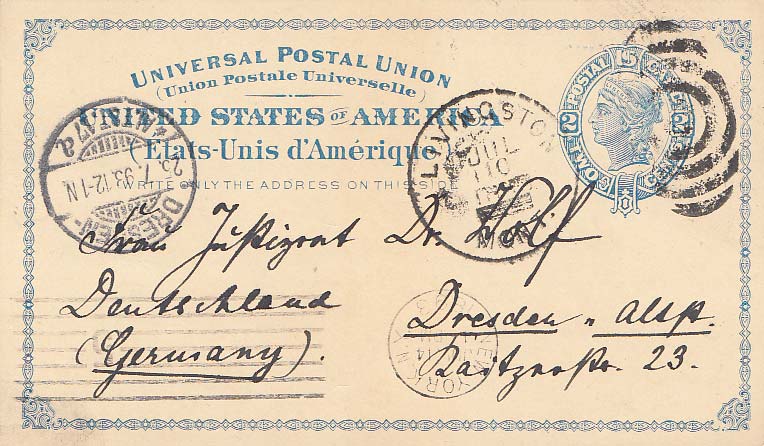 UNIVERSAL POSTAL UNION
(Union Postale Universelle)
UNITED STATES OF AMERICA
(Etats-Unis d'Amérique)
WRITE ONLY THE ADDRESS ON THIS SIDE
POSTAL U.S. CARD
2 2
TWO CENTS
LIVINGSTON
JUL
10
MON
DRESDEN-
ALTST.
25. 7. 93. 12-1 N.
NEW YORK
Frau Justizrat Dr. Wolf
Deutschland
(Germany).
Dresden - Altst.
Raitzerstr. 23.